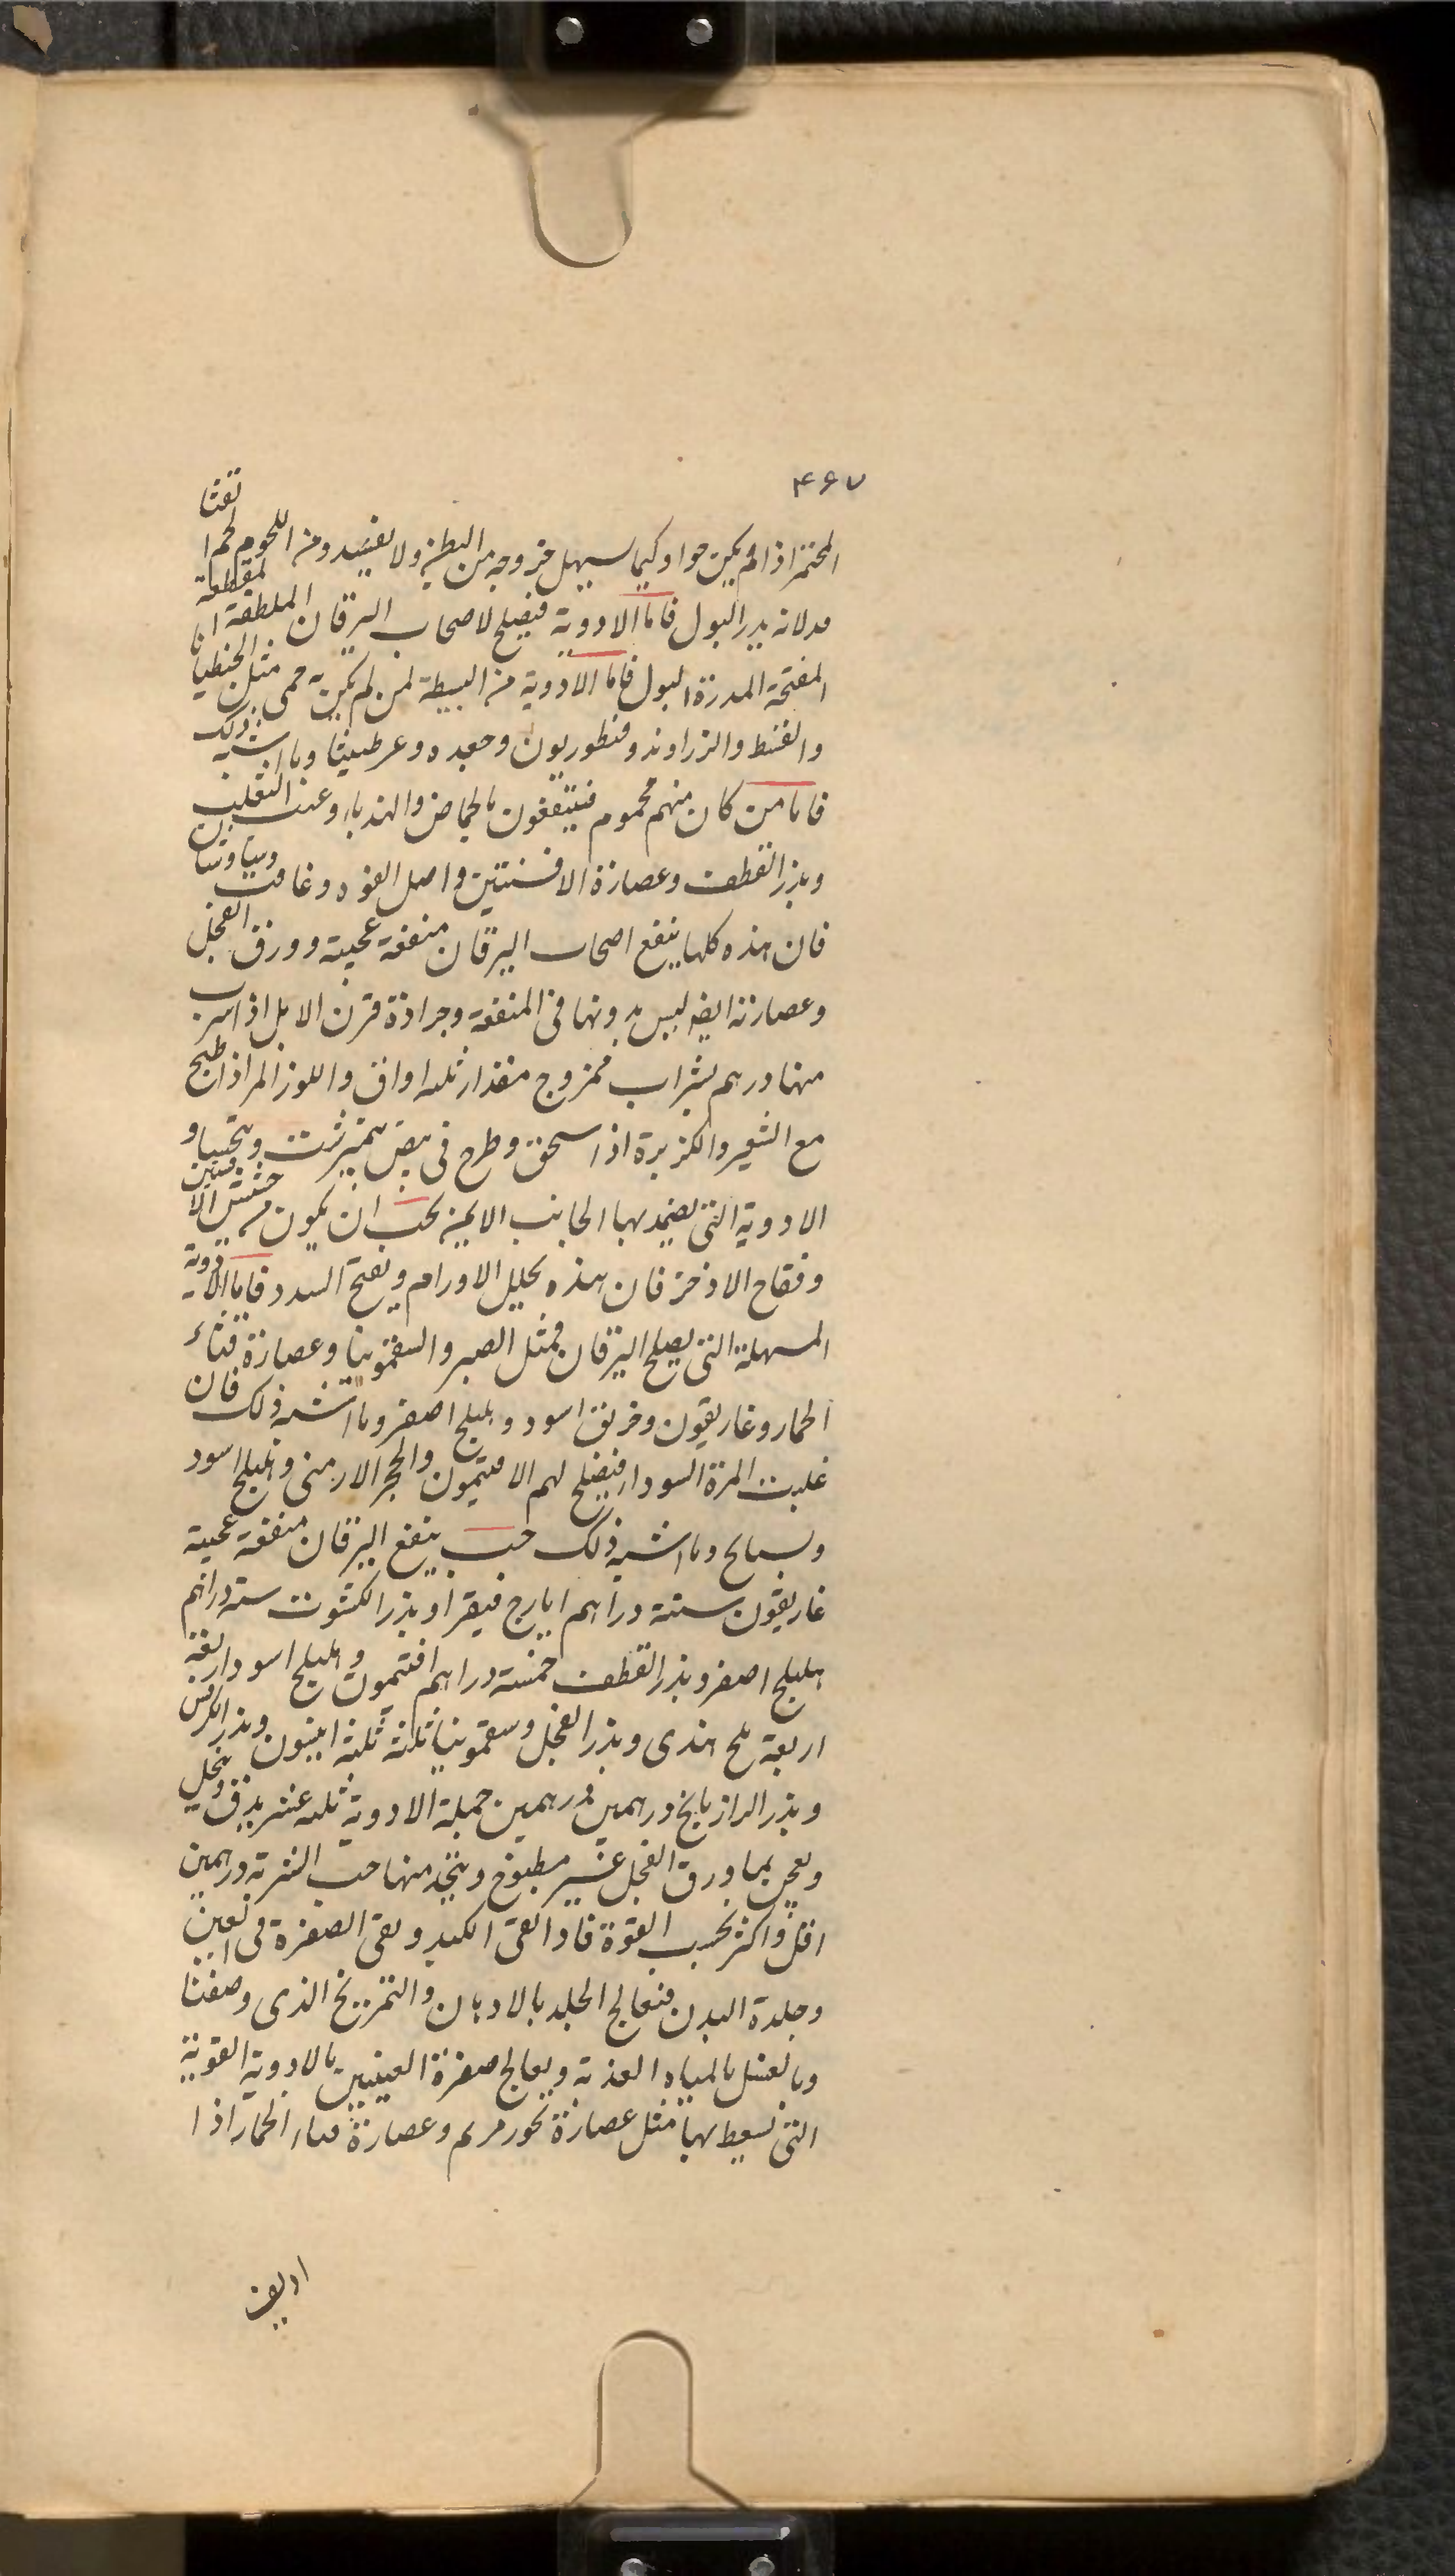 ۴۶۷
المختمر اذا لم يكن حوا وكيما سهل خروجه من البطن ولا يفسد ومن اللحوم لحم القنا
مد لانه يدر البول فاما الادوية فيصلح لاصحاب اليرقان الملطفة المقطعة
المفتحة المدرة البول فاما الادوية من البسيطة لمن لم يكن به حمى مثل الجنطيانا
والقسط والزراوند وقنطوريون وجعده وعرطنيثا وما اشبه ذلك
فاما من كان منهم محموم فينتفعون بالحماض والهندباء وعنب الثعلب
وبزر القطف وعصارة الافسنتين واصل الفوه وغافت
فان هذه كلها ينفع اصحاب اليرقان منفعة عجيبة وورق الفجل
وعصارته ايضا ليس بدونها فى المنفعة وجرادة قرن الايل اذا شرب
منها درهم بشراب ممزوج مقدار ثلثه اواق واللوز المر اذا طبخ
مع الشعير والكزبرة اذا سحق وطرح فى بيض نيمبرشت ويتحسا و
الادوية التى يضمد بها الجانب الايمن يجب ان يكون من حشيش الافسنتين
وفقاح الاذخر فان هذه يحلل الاورام ويفتح السدد فاما الادوية
المسهلة التى يصلح اليرقان فمثل الصبر والسقمونيا وعصارة قثاء
الحمار وغاريقون وخربق اسود وهليلج اصفر وما اشبه ذلك فان
غلبت المرة السوداء فيصلح لهم الافتيمون والحجر الارمنى وهليلج اسود
وبسبايج وما اشبه ذلك حب ينفع اليرقان منفعة عجيبة
غاريقون ستة دراهم ايارج فيقرا وبذر الكشوث ستة دراهم
هليلج اصفر وبذر القطف خمسة دراهم افتيمون وهليلج اسود اربعة
اربعة ملح هندى وبذر الفجل وسقمونيا ثلثة ثلثة انيسون وبذر الكرفس
وبذر الرازيانج درهمين درهمين جملة الادوية ثلثه عشر يدق وينخل
ويعجن بماء ورق الفجل غير مطبوخ ويتخذ منها حب الشربة درهمين
اقل واكثر بحسب القوة فاذا نقى الكبد وبقى الصفرة فى العين
وجلدة البدن فيعالج الجلد بالادهان والتمريخ الذى وصفنا
وبالغسل بالمياه العذبة ويعالج صفرة العينين بالادوية القوية
التى تسعط بها مثل عصارة بخور مريم وعصارة قثاء الحمار اذا
اديف